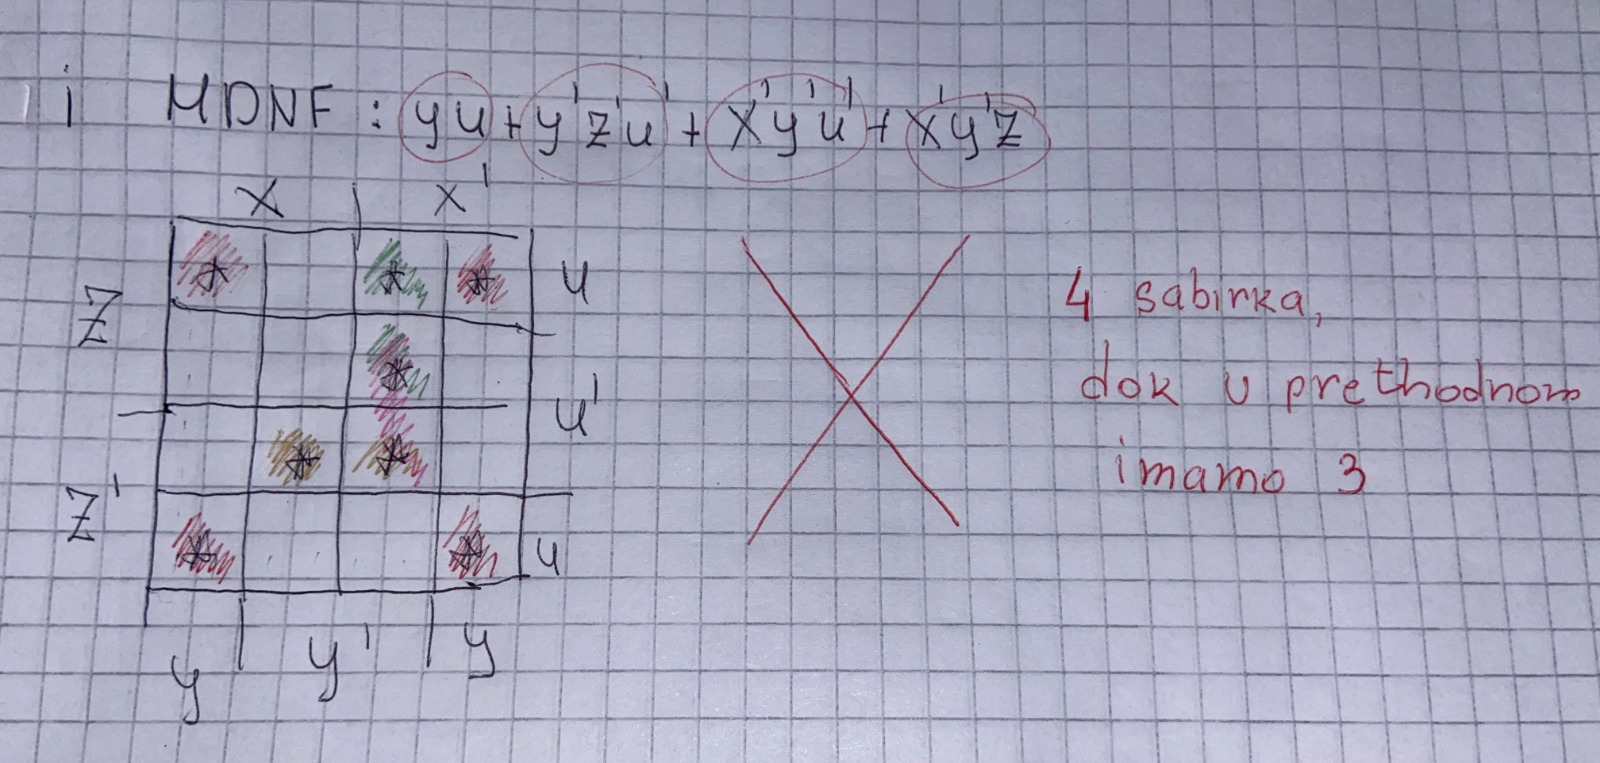 i MDNF : yu + y'z'u' + x'y'u' + x'y'z
x x'
z u
u'
z' u
y y' y
4 sabirka,
dok u prethodnom
imamo 3